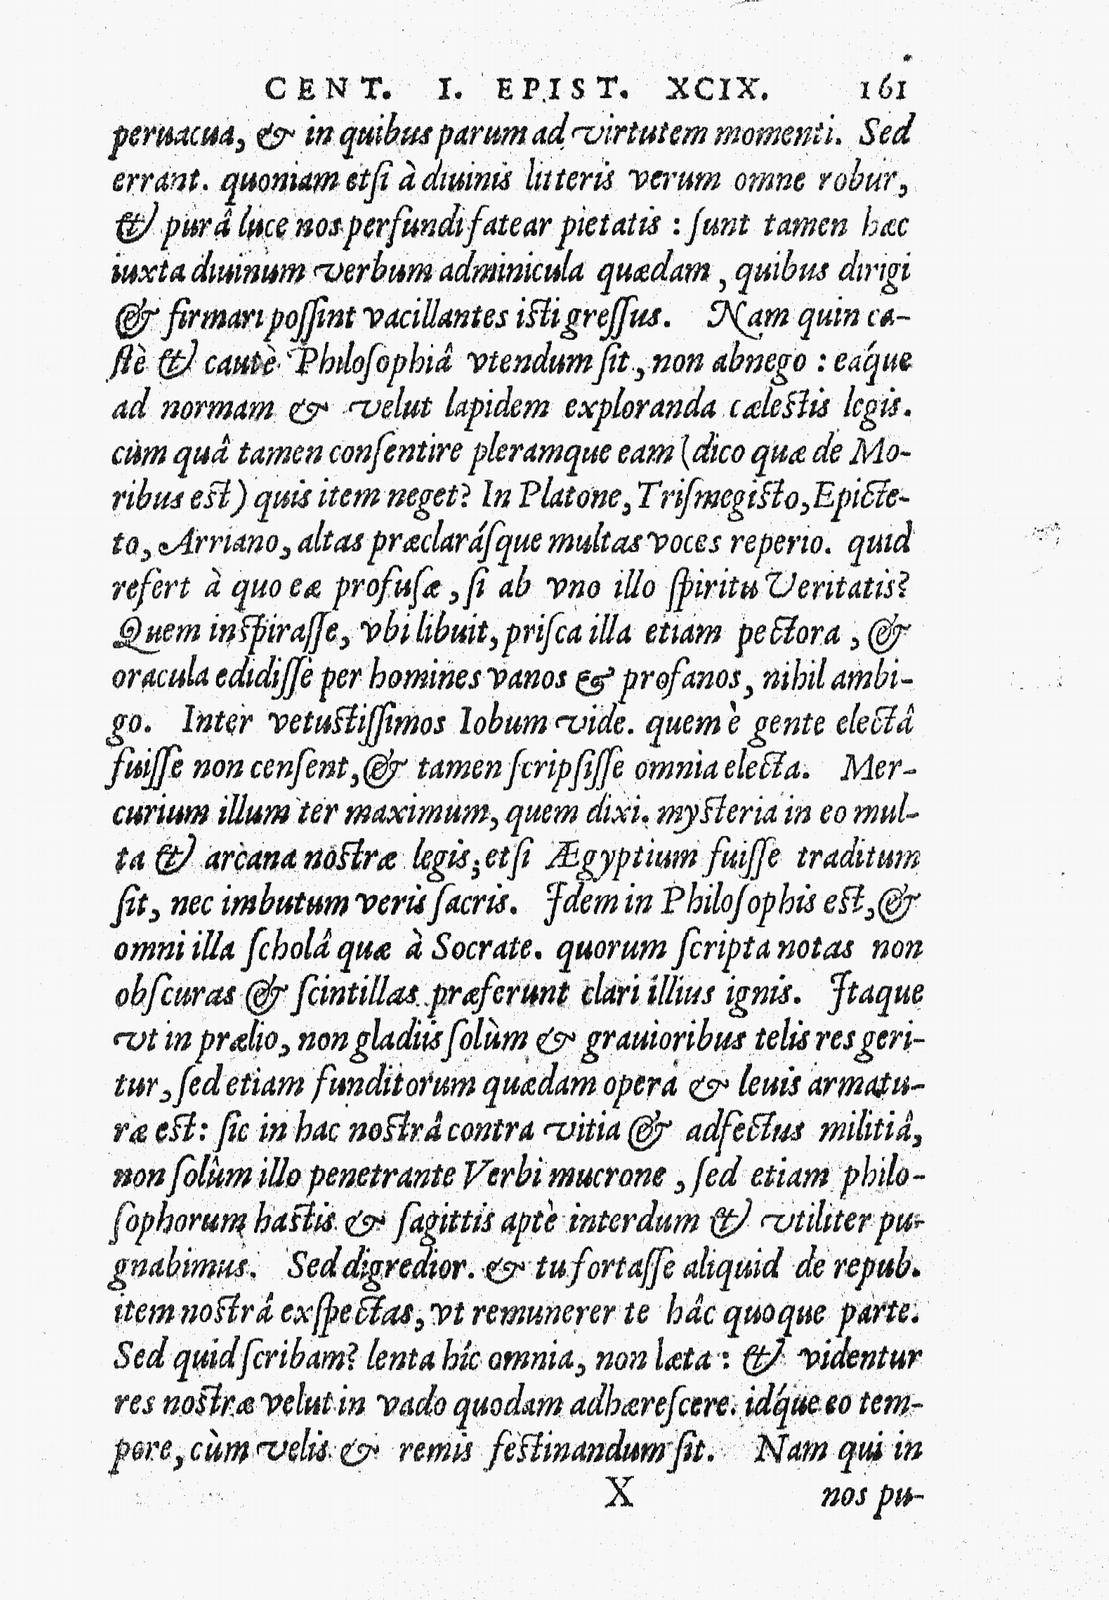 CENT. I. EPIST. XCIX. 161
peruacua, & in quibus parum ad virtutem momenti. Sed
errant. quoniam etſi à diuinis litteris verum omne robur,
& purâ luce nos perfundi fatear pietatis : ſunt tamen hæc
iuxta diuinum verbum adminicula quædam, quibus dirigi
& firmari poſſint vacillantes iſti greſſus. Nam quin ca-
ſtè & cautè Philoſophiâ vtendum ſit, non abnego : eáque
ad normam & velut lapidem exploranda cæleſtis legis.
cùm quâ tamen conſentire pleramque eam (dico quæ de Mo-
ribus eſt) quis item neget? In Platone, Triſmegiſto, Epicte-
to, Arriano, altas præclaráſque multas voces reperio. quid
refert à quo eæ profuſæ, ſi ab vno illo ſpiritu Veritatis?
Quem inſpiraſſe, vbi libuit, priſca illa etiam pectora, &
oracula edidiſſe per homines vanos & profanos, nihil ambi-
go. Inter vetuſtiſſimos Iobum vide. quem è gente electâ
fuiſſe non cenſent, & tamen ſcripſiſſe omnia electa. Mer-
curium illum ter maximum, quem dixi. myſteria in eo mul-
ta & arcana noſtræ legis; etſi Ægyptium fuiſſe traditum
ſit, nec imbutum veris ſacris. Idem in Philoſophis eſt, &
omni illa ſcholâ quæ à Socrate. quorum ſcripta notas non
obſcuras & ſcintillas præferunt clari illius ignis. Itaque
vt in prælio, non gladiis ſolùm & grauioribus telis res geri-
tur, ſed etiam funditorum quædam opera & leuis armatu-
ræ eſt: ſic in hac noſtrâ contra vitia & adfectus militiâ,
non ſolûm illo penetrante Verbi mucrone, ſed etiam philo-
ſophorum haſtis & ſagittis aptè interdum & vtiliter pu-
gnabimus. Sed digredior. & tu fortaſſe aliquid de repub.
item noſtrâ exſpectas, vt remunerer te hâc quoque parte.
Sed quid ſcribam? lenta hîc omnia, non læta : & videntur
res noſtræ velut in vado quodam adhæreſcere. idque eo tem-
pore, cùm velis & remis feſtinandum ſit. Nam qui in
X nos pu-